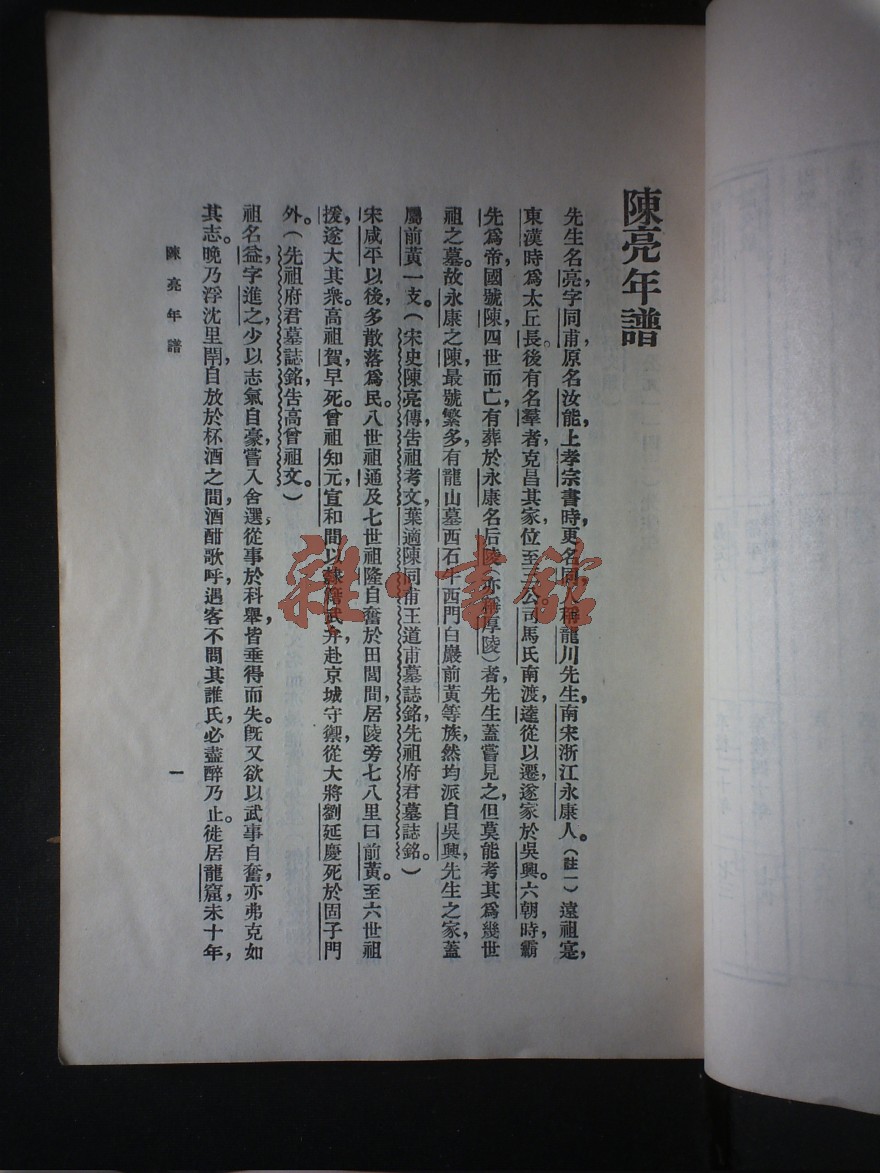 陳亮年譜
先生名亮，字同甫，原名汝能，上孝宗書時，更名同，人稱龍川先生，南宋浙江永康人。（註一）遠祖寔，
東漢時爲太丘長。後有名羣者克昌其家，位至三公。司馬氏南渡，逵從以遷，遂家於吳興。六朝時霸
先爲帝，國號陳，四世而亡，有葬於永康名后陵（亦稱厚陵）者，先生蓋嘗見之，但莫能考其爲幾世
祖之墓。故永康之陳最號繁多，有龍山墓西石牛西門白巖前黃等族，然均派自吳興，先生之家蓋
屬前黃一支。（宋史陳亮傳，告祖考文，葉適陳同甫王道甫墓誌銘，先祖府君墓誌銘。）
宋咸平以後，多散落爲民。八世祖通及七世祖隆自奮於田閭間，居陵旁七八里曰前黃。至六世祖
援，遂大其衆。高祖賀早死。曾祖知元，宣和間以隸 武弁赴京城守禦，從大將劉延慶死於固子門
外。（先祖府君墓誌銘，告高曾祖文。）
祖名益，字進之，少以志氣自豪，嘗入舍選，從事於科舉，皆垂得而失。旣又欲以武事自奮，亦弗克如
其志。晚乃浮沈里閈，自放於杯酒之間，酒酣歌呼，遇客不問其誰氏，必盡醉乃止。徙居龍窟，未十年，
陳亮年譜
一
雜·書館